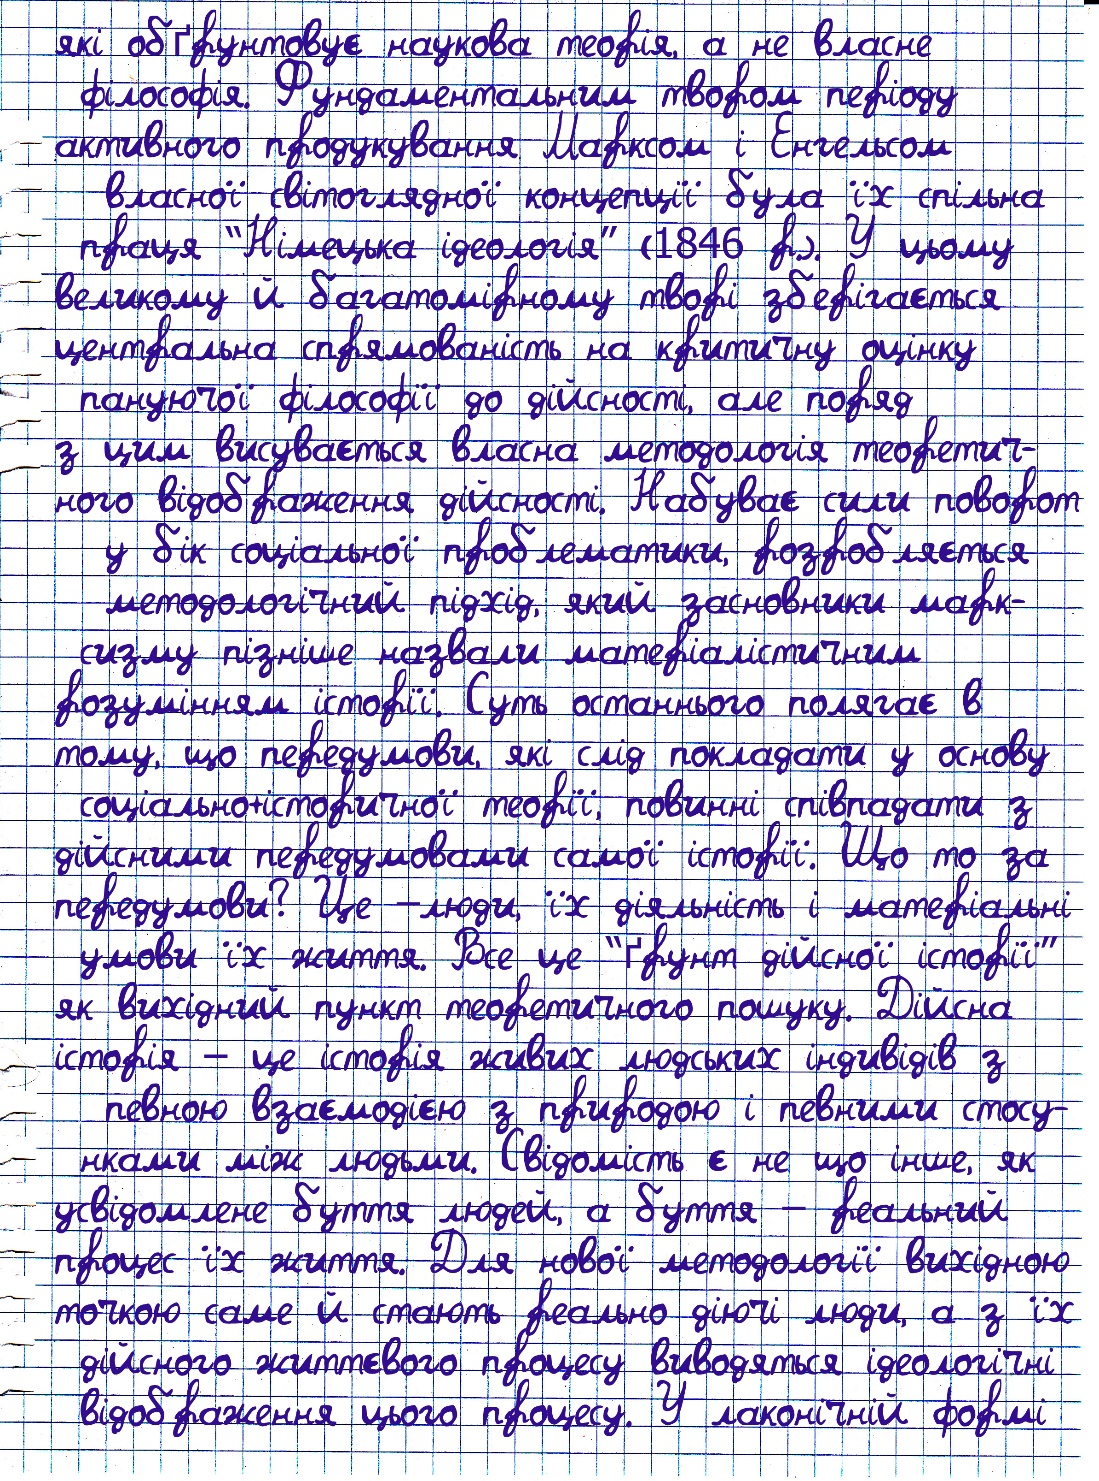 які обґрунтовує наукова теорія, а не власне
філософія. Фундаментальним твором періоду
активного продукування Марксом і Енгельсом
власної світоглядної концепції була їх спільна
праця "Німецька ідеологія" (1846 р.). У цьому
великому й багатомірному творі зберігається
центральна спрямованість на критичну оцінку
пануючої філософії до дійсності, але поряд
з цим висувається власна методологія теоретич-
ного відображення дійсності. Набуває сили поворот
у бік соціальної проблематики, розробляється
методологічний підхід, який засновники марк-
сизму пізніше назвали матеріалістичним
розумінням історії. Суть останнього полягає в
тому, що передумови, які слід покладати у основу
соціально+історичної теорії, повинні співпадати з
дійсними передумовами самої історії. Що то за
передумови? Це –люди, їх діяльність і матеріальні
умови їх життя. Все це "ґрунт дійсної історії"
як вихідний пункт теоретичного пошуку. Дійсна
історія – це історія живих людських індивідів з
певною взаємодією з природою і певними стосу-
нками між людьми. Свідомість є не що інше, як
усвідомлене буття людей, а буття – реальний
процес їх життя. Для нової методології вихідною
точкою саме й стають реально діючі люди, а з їх
дійсного життєвого процесу виводяться ідеологічні
відображення цього процесу. У лаконічній формі